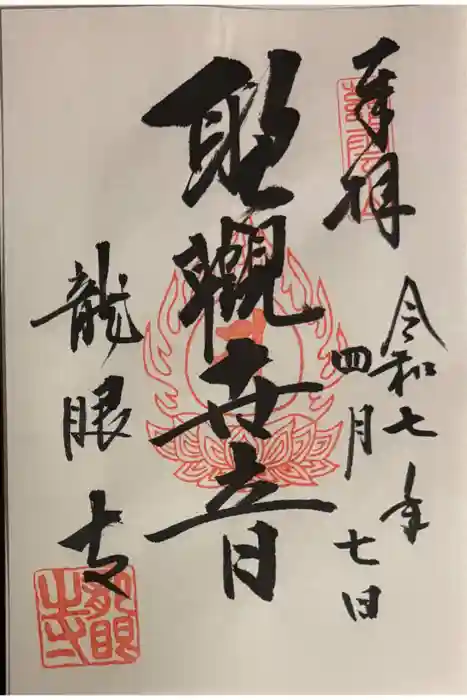 奉拝
令和七年
四月七日
聖觀世音
龍眼寺
龍眼寺